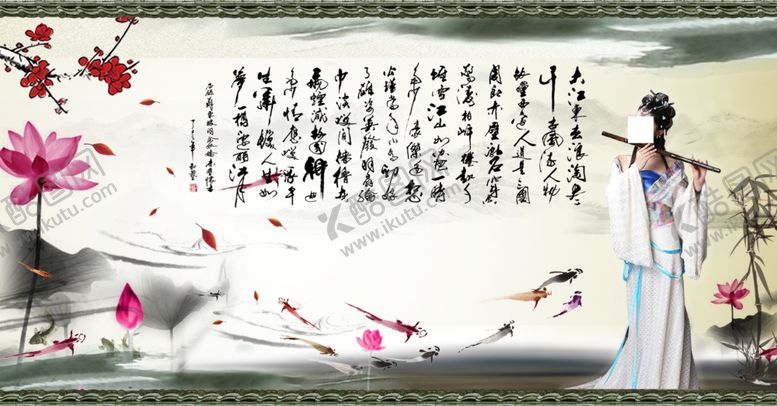 大江東去浪淘盡
千古風流人物
故壘西邊人道是三國
周郎赤壁亂石
驚濤拍岸捲起千
堆雪江山如畫一時
多少豪傑遙想
公瑾當年小喬初嫁
了雄姿英發羽扇綸
巾談笑間檣櫓灰
飛煙滅故國神遊
多情應笑我早
生華髮人生如
夢一樽還酹江月
www.ikutu.com
www.ikutu.com
www.ikutu.com